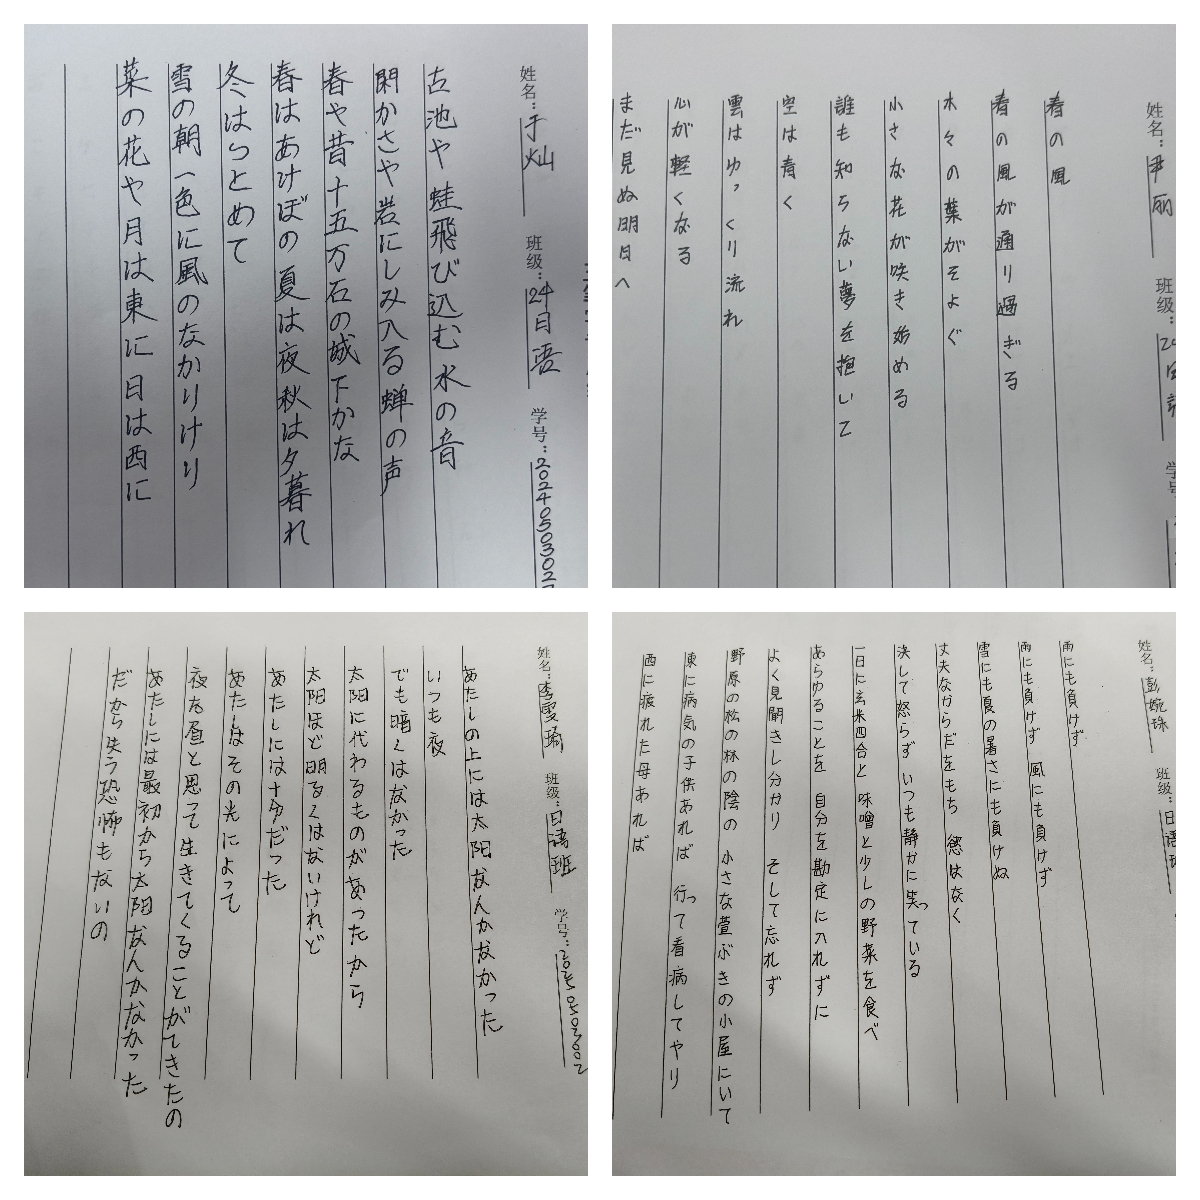 姓名：于灿 班级：24日语 学号：2024050302
古池や蛙飛び込む水の音
閑かさや岩にしみ入る蝉の声
春や昔十五万石の城下かな
春はあけぼの夏は夜秋は夕暮れ
冬はつとめて
雪の朝一色に風のなかりけり
菜の花や月は東に日は西に
姓名：尹丽 班级：24日语 学号：
春の風
春の風が通り過ぎる
木々の葉がそよぐ
小さな花が咲き始める
誰も知らない夢を抱いて
空は青く
雲はゆっくり流れ
心が軽くなる
まだ見ぬ明日へ
姓名：李雯瑜 班级：日语班 学号：
あたしの上には太阳なんかなかった
いつも夜
でも暗くはなかった
太阳に代わるものがあったから
太阳ほど明るくはないけれど
あたしには十分だった
あたしはその光によって
夜を昼と思って生きてくることができたの
あたしには最初から太阳なんかなかった
だから失う恐怖もないの
姓名：彭婉珠 班级：日语班
雨にも負けず
雨にも負けず 風にも負けず
雪にも夏の暑さにも負けぬ
丈夫なからだをもち 慾はなく
决して怒らず いつも静かに笑っている
一日に玄米四合と 味噌と少しの野菜を食べ
あらゆることを 自分を勘定に入れずに
よく見聞きし分かり そして忘れず
野原の松の林の陰の 小さな萱ぶきの小屋にいて
東に病気の子供あれば 行って看病してやり
西に疲れた母あれば